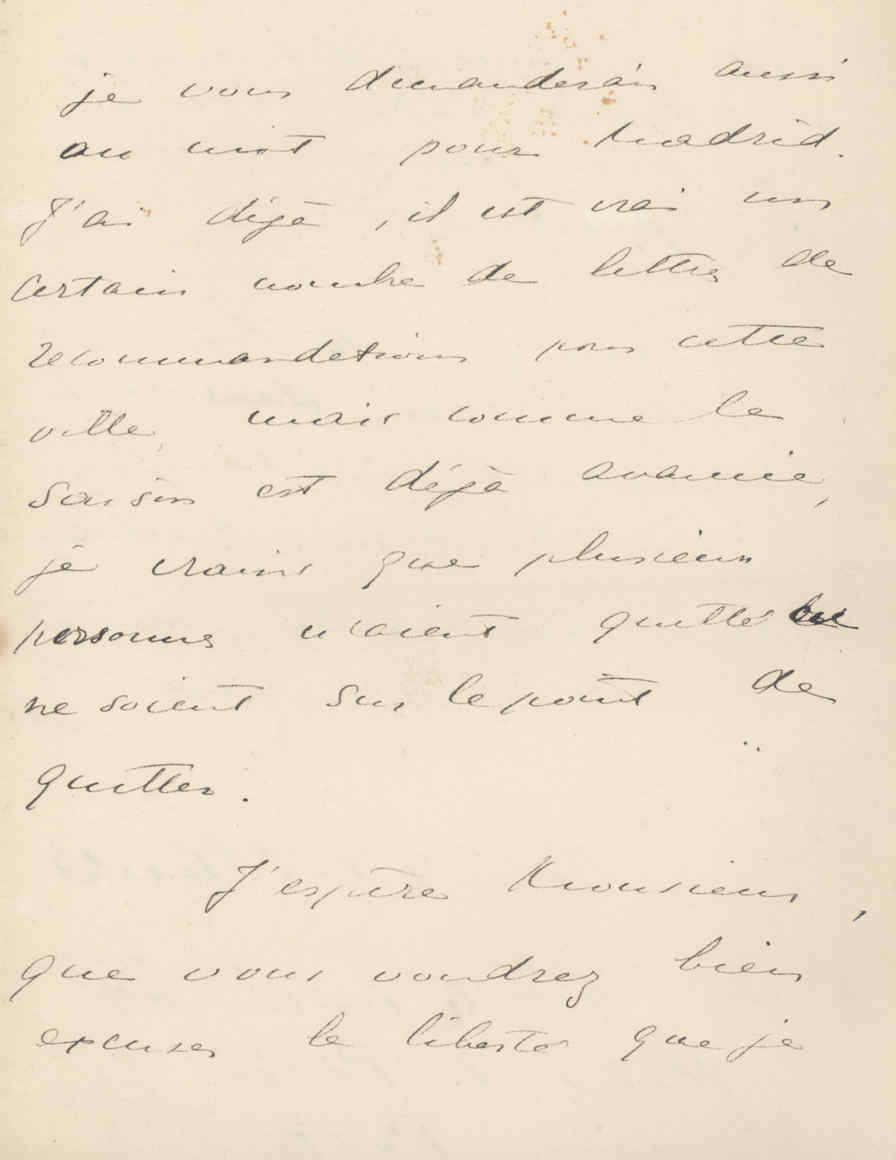 je vous demanderais aussi
un mot pour Madrid.
J'ai déjà, il est vrai un
certain nombre de lettres de
recommandations pour cette
ville, mais comme la
saison est déjà avancée,
je crains que plusieurs
personnes n'aient quitté ou
ne soient sur le point de
quitter.
J'espère Monsieur,
que vous voudrez bien
excuser la liberté que je